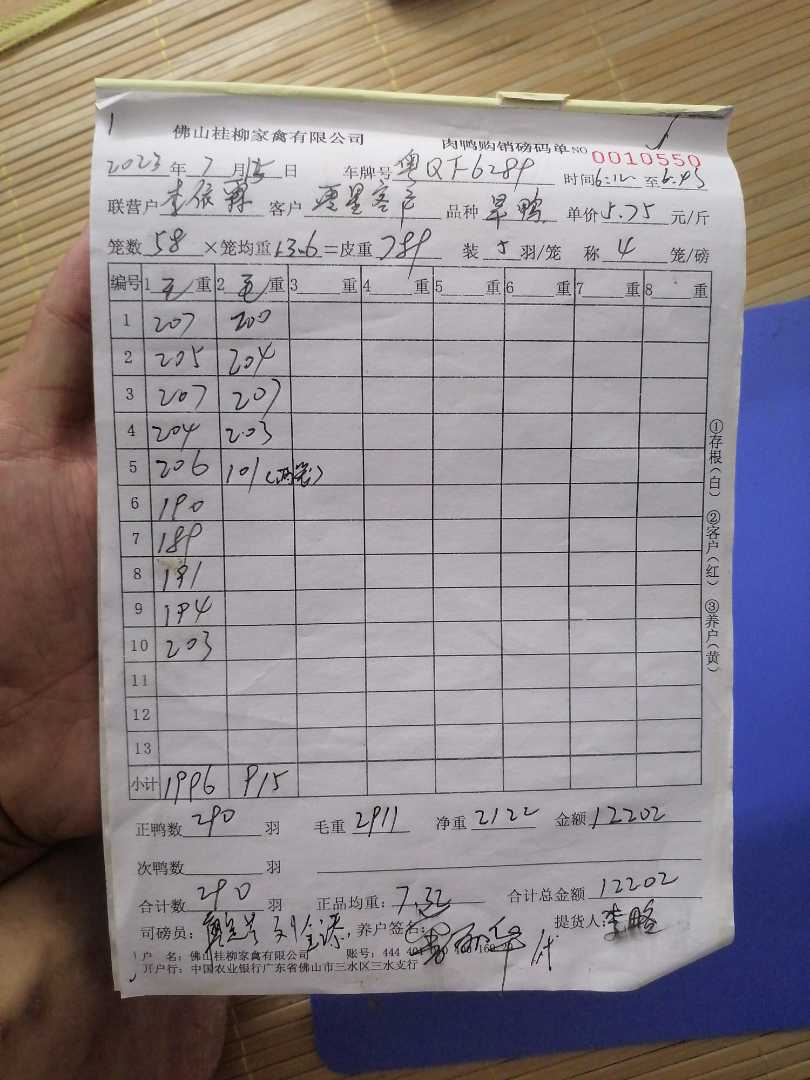 佛山桂柳家禽有限公司 肉鸭购销磅码单 NO 0010550
2023 年 7 月 15 日 车牌号 粤QF6289 时间 6:12 至 6:43
联营户 李依霖 客户 客户 品种 旱鸭 单价 5.75 元/斤
笼数 58 ×笼均重 13.6 =皮重 789 装 5 羽/笼 称 4 笼/磅
编号 1 毛 重 2 毛 重 3 重 4 重 5 重 6 重 7 重 8 重
1 207 200
2 205 204
3 207 207
4 204 203
5 206 101(两笼)
6 190
7 189
8 191
9 194
10 203
11
12
13
小计 1996 915
①存根(白) ②客户(红) ③养户(黄)
正鸭数 290 羽 毛重 2911 净重 2122 金额 12202
次鸭数 羽
合计数 290 羽 正品均重: 7.32 合计总金额 12202
司磅员: 养户签名: 代 提货人:李
户 名: 佛山桂柳家禽有限公司 账号: 444
开户行: 中国农业银行广东省佛山市三水区三水支行